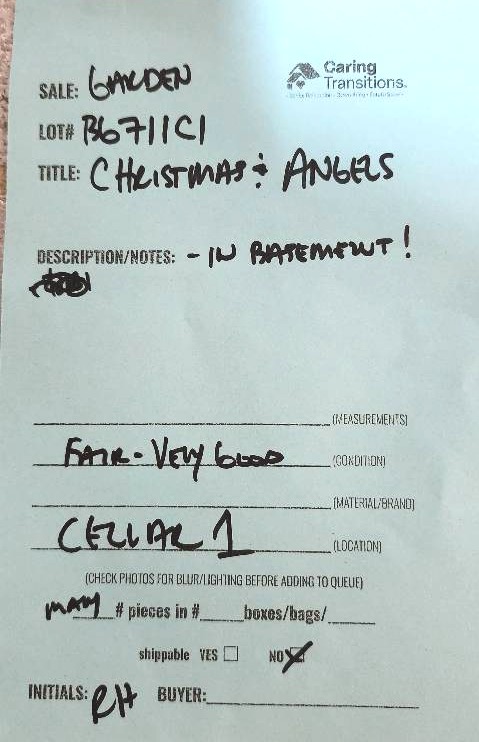 Caring
Transitions.
SALE: GARDEN
LOT# B6711C1
TITLE: CHRISTMAS & ANGELS
DESCRIPTION/NOTES: - IN BASEMENT!
(MEASUREMENTS)
FAIR - VERY GOOD (CONDITION)
(MATERIAL/BRAND)
CELLAR 1 (LOCATION)
(CHECK PHOTOS FOR BLUR/LIGHTING BEFORE ADDING TO QUEUE)
MANY # pieces in # boxes/bags/
shippable YES NO
INITIALS: RH BUYER: